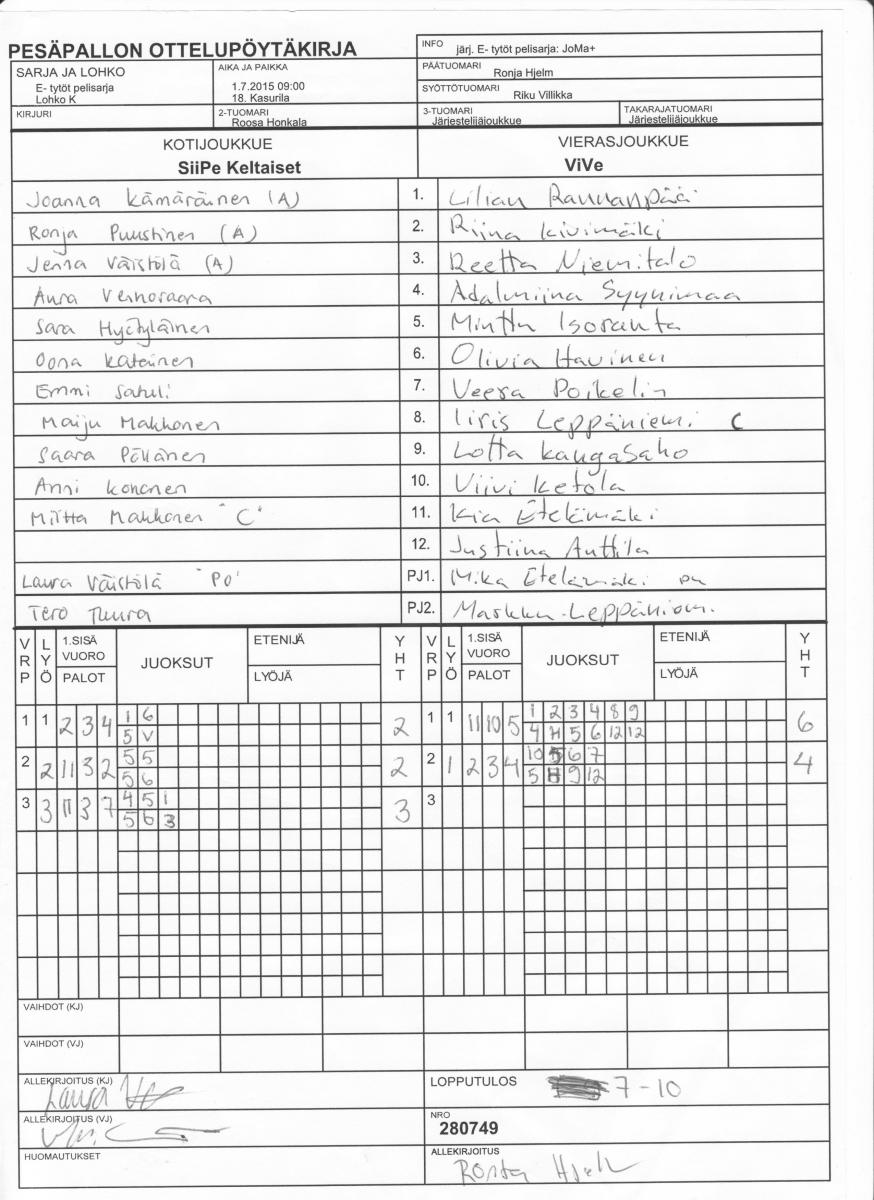 PESÄPALLON OTTELUPÖYTÄKIRJA
INFO järj. E- tytöt pelisarja: JoMa+
SARJA JA LOHKO
E- tytöt pelisarja
Lohko K
AIKA JA PAIKKA
1.7.2015 09:00
18. Kasurila
PÄÄTUOMARI
Ronja Hjelm
SYÖTTÖTUOMARI
Riku Villikka
KIRJURI
2-TUOMARI
Roosa Honkala
3-TUOMARI
Järjestelijäjoukkue
TAKARAJATUOMARI
Järjestelijäjoukkue
KOTIJOUKKUE
SiiPe Keltaiset
VIERASJOUKKUE
ViVe
Joanna Kämäräinen (A) 1. Lilian Rannanpää
Ronja Puustinen (A) 2. Riina Kivimäki
Jenna Väistölä (A) 3. Reetta Niemitalo
Aura 4. Adalmiina Syynimaa
Sara Hyötyläinen 5. Minttu Isoranta
Oona Katainen 6. Olivia Havinen
Emmi 7. Veera Poikelin
Maiju Makkonen 8. Iiris Leppäniemi C
Saara Pölänen 9. Lotta Kangasaho
Anni Kononen 10. Viivi Ketola
Miitta Makkonen "C" 11. Kia Etelämäki
12. Justiina Anttila
Laura Väistölä "PO" PJ1. Mika Etelämäki
Tero Tuura PJ2. Markku Leppäniemi
VRP LYÖ 1.SISÄ VUORO PALOT JUOKSUT ETENIJÄ LYÖJÄ YHT VRP LYÖ 1.SISÄ VUORO PALOT JUOKSUT ETENIJÄ LYÖJÄ YHT
1 1 2 3 4 1 6 2 1 1 11 10 5 1 2 3 4 8 9 6
5 V 4 H 5 6 12 12
2 2 11 3 2 5 5 2 2 1 2 3 4 10 5 6 7 4
5 6 5 8 9 12
3 3 11 3 7 4 5 1 3 3
5 6 3
VAIHDOT (KJ)
VAIHDOT (VJ)
ALLEKIRJOITUS (KJ) Laura
LOPPUTULOS 7-10
ALLEKIRJOITUS (VJ)
NRO
280749
HUOMAUTUKSET
ALLEKIRJOITUS
Ronja Hjelm